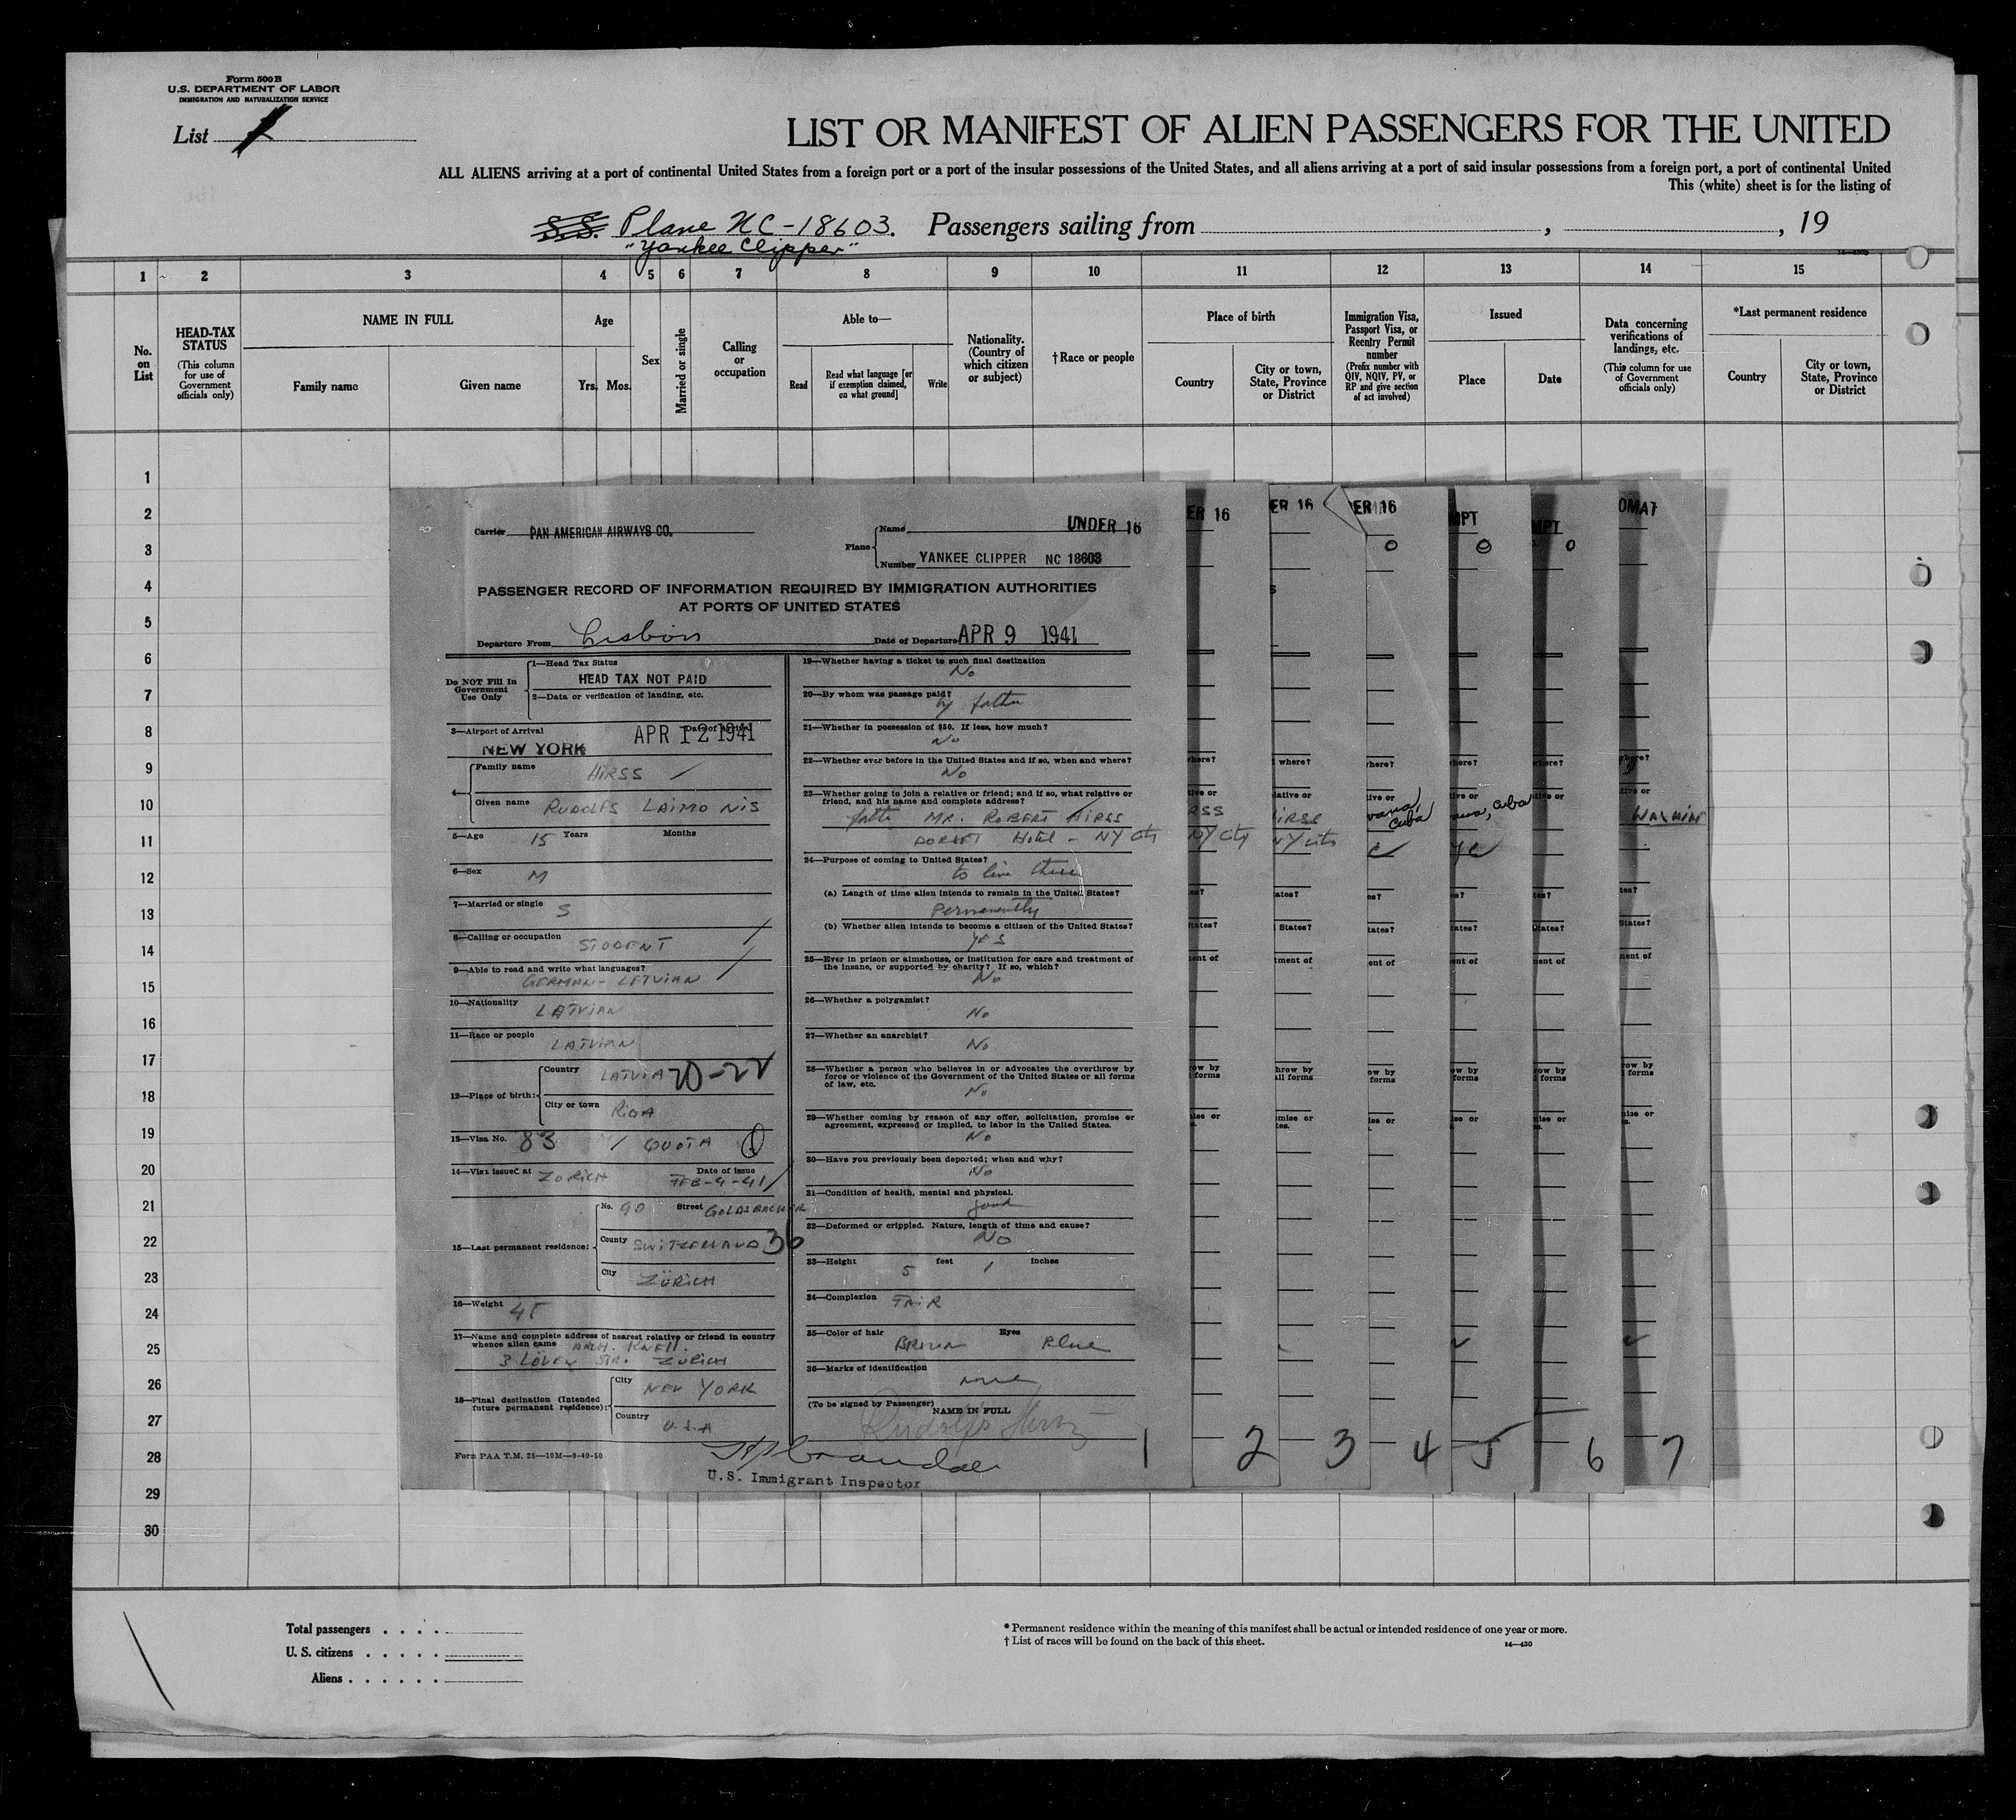 Form 500 B
U.S. DEPARTMENT OF LABOR
IMMIGRATION AND NATURALIZATION SERVICE
List
LIST OR MANIFEST OF ALIEN PASSENGERS FOR THE UNITED
ALL ALIENS arriving at a port of continental United States from a foreign port or a port of the insular possessions of the United States, and all aliens arriving at a port of said insular possessions from a foreign port, a port of continental United
This (white) sheet is for the listing of
S.S. Plane NC-18603. Passengers sailing from , , 19
"Yankee Clipper"
1 2 3 4 5 6 7 8 9 10 11 12 13 14 15
No. on List
HEAD-TAX STATUS
(This column for use of Government officials only)
NAME IN FULL
Family name
Given name
Age
Yrs. Mos.
Sex
Married or single
Calling or occupation
Able to—
Read
Read what language [or if exemption claimed, on what ground]
Write
Nationality. (Country of which citizen or subject)
†Race or people
Place of birth
Country
City or town, State, Province or District
Immigration Visa, Passport Visa, or Reentry Permit number
(Prefix number with QIV, NQIV, PV, or RP and give section of act involved)
Issued
Place
Date
Data concerning verifications of landings, etc.
(This column for use of Government officials only)
*Last permanent residence
Country
City or town, State, Province or District
1
2
3
4
5
6
7
8
9
10
11
12
13
14
15
16
17
18
19
20
21
22
23
24
25
26
27
28
29
30
Carrier PAN AMERICAN AIRWAYS CO.
Plane
Name
UNDER 16
Number YANKEE CLIPPER NC 18603
PASSENGER RECORD OF INFORMATION REQUIRED BY IMMIGRATION AUTHORITIES
AT PORTS OF UNITED STATES
Departure From Lisbon Date of Departure APR 9 1941
Do NOT Fill In
Government
Use Only
1—Head Tax Status
HEAD TAX NOT PAID
2—Data or verification of landing, etc.
3—Airport of Arrival
NEW YORK APR 12 1941
4—
Family name HIRSS
Given name RUDOLFS LAIMONIS
5—Age 15 Years Months
6—Sex M
7—Married or single S
8—Calling or occupation STUDENT
9—Able to read and write what languages?
GERMAN - LETVIAN
10—Nationality
LATVIAN
11—Race or people
LATVIAN
12—Place of birth:
Country LATVIA 20-22
City or town RIGA
13—Visa No. 83 / QUOTA
14—Visa issued at ZURICH Date of issue
FEB-4-41
15—Last permanent residence:
No. 90 Street GOLDBACHER
County SWITZERLAND 36
City ZÜRICH
16—Weight 45
17—Name and complete address of nearest relative or friend in country
whence alien came ARCH. KNELL.
3 LÖWEN STR. ZURICH
18—Final destination (Intended
future permanent residence):
City NEW YORK
Country U.S.A
Form PAA T.M. 28—10M—9-40-50
U.S. Immigrant Inspector
19—Whether having a ticket to such final destination
No
20—By whom was passage paid?
by father
21—Whether in possession of $50. If less, how much?
No
22—Whether ever before in the United States and if so, when and where?
No
23—Whether going to join a relative or friend; and if so, what relative or
friend, and his name and complete address?
MR. ROBERT HIRSS
DORSET Hotel - NY City
24—Purpose of coming to United States?
to live there
(a) Length of time alien intends to remain in the United States?
Permanently
(b) Whether alien intends to become a citizen of the United States?
YES
25—Ever in prison or almshouse, or institution for care and treatment of
the insane, or supported by charity? If so, which?
No
26—Whether a polygamist?
No
27—Whether an anarchist?
No
28—Whether a person who believes in or advocates the overthrow by
force or violence of the Government of the United States or all forms
of law, etc.
No
29—Whether coming by reason of any offer, solicitation, promise or
agreement, expressed or implied, to labor in the United States.
No
30—Have you previously been deported; when and why?
No
31—Condition of health, mental and physical.
good
32—Deformed or crippled. Nature, length of time and cause?
No
33—Height 5 feet 1 inches
34—Complexion FAIR
35—Color of hair BROWN Eyes Blue
36—Marks of identification
none
(To be signed by Passenger)
NAME IN FULL
1 2 3 4 5 6 7
Total passengers
U. S. citizens
Aliens
* Permanent residence within the meaning of this manifest shall be actual or intended residence of one year or more.
† List of races will be found on the back of this sheet.
14—430